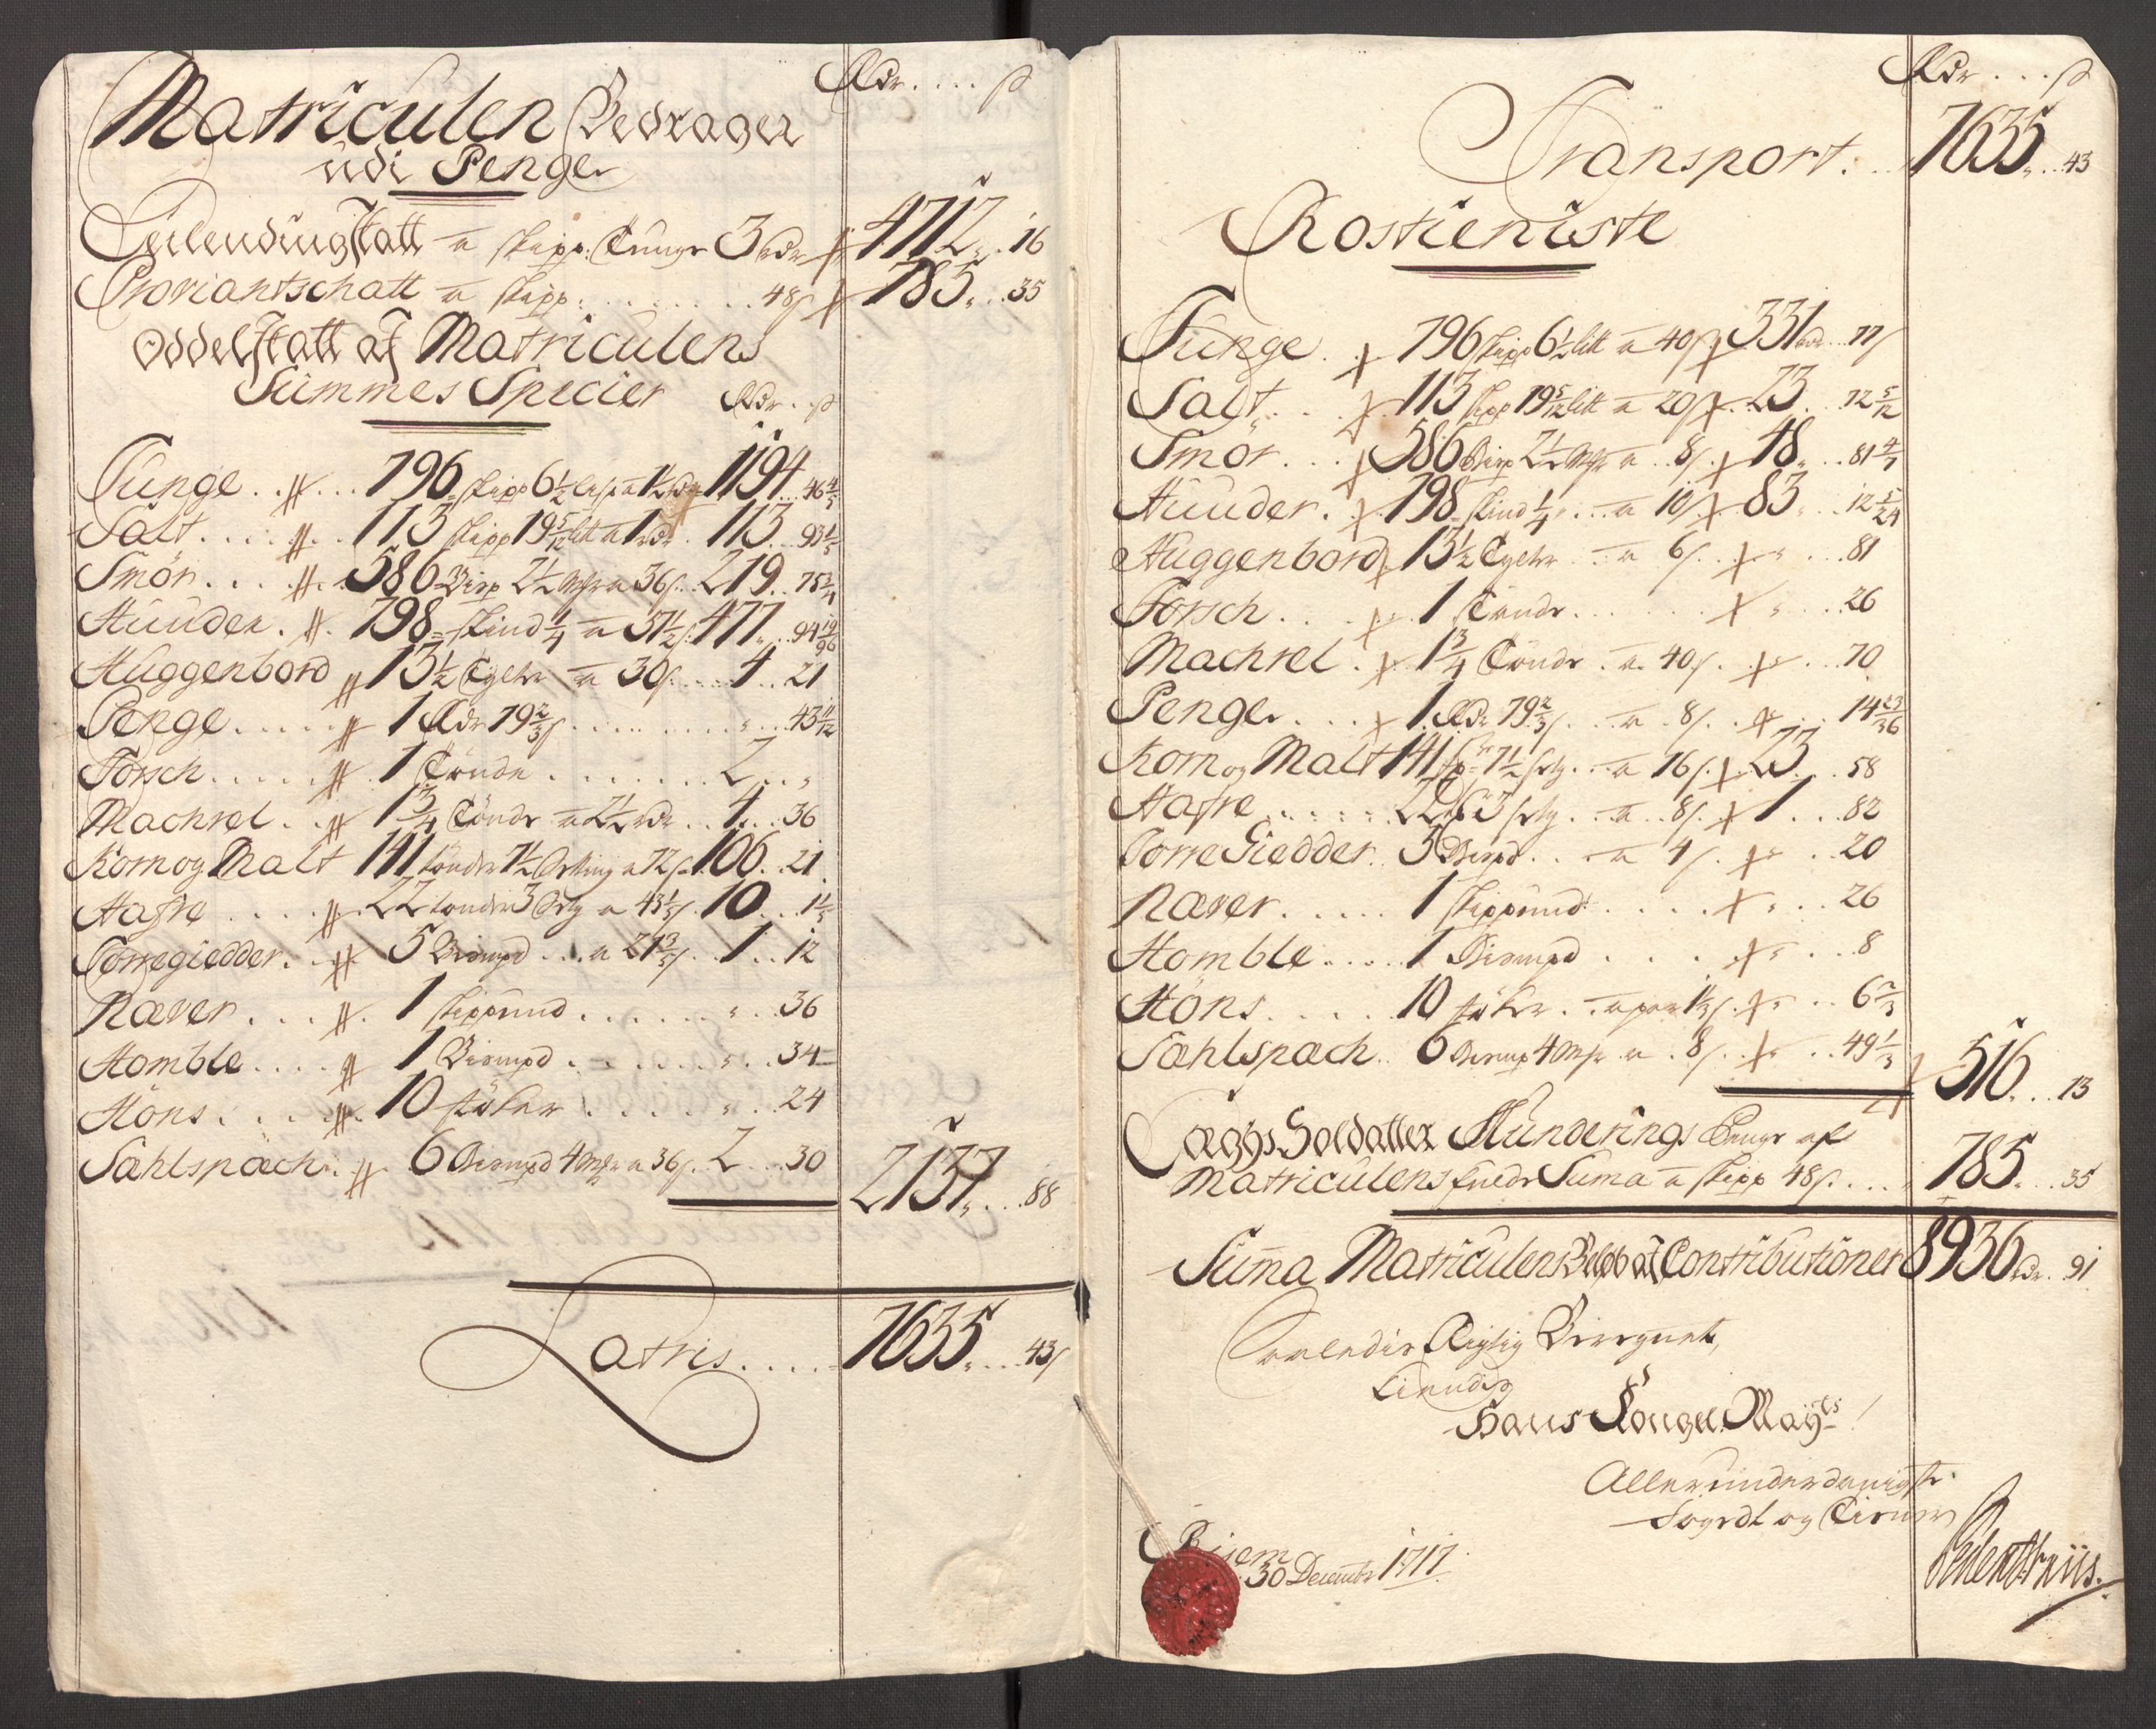 Rdr .... ß
Matriculen Bedrager
udi Penge
Leilendingskatt a skipp: Tunge 3 rdr 4712 .. 16
Proviantschatt a skipp: ....... 48ß 785 .. 35
Oddelskatt af Matriculens
Summes Specier Rdr .. ß
Tunge .. 796 skipp 6½ lisp a 1½ rdr 1194 .. 46 4/5
Salt .... 113 skipp 19 5/12 litt a 1 rdr 113 .. 93 1/5
Smör ... 586 Bisp 2½ Mk a 36ß 219 .. 75 3/4
Huuder . 798 skind ¼ a 37½ß 477 .. 94 19/96
Huggenbord 13½ Tylter a 30ß ... 4 .. 21
Penge .... 1 Rdr 19 2/3 ß ........ " .. 43 11/12
Torsch .... 1 Tönde ....... 2 .. "
Machrel .. 1¾ Tönde a 2½ rdr .. 4 .. 36
Korn og Malt 141 tönder 7½ a 72ß 106 .. 21
Hafre .... 22 tonder 3 a 43 1/5 ß 10 .. 1 1/5
Torregiedder .. 5 Bismpd .. a 21 3/5 ß 1 .. 12
Næver ... 1 skippund ...... " .. 36
Homble .... 1 Bismpd ...... " .. 34
Höns .... 10 stöker ...... " .. 24
Sahlspæch .. 6 Bismpd 4 Mk a 36ß 2 .. 30 2137 ... 88
Latris .... 7635 ... 43ß
Rdr ... ß
Transport . 7635 .. 43
Rostieniste
Tunge . 796 skipp 6½ litt a 40ß 331 rdr .. 77ß
Salt ... 113 skipp 19 5/12 litt a 20ß 23 .. 72 5/12
Smör ... 586 Bisp 2½ Mk a .. 8ß 48 .. 81 4/7
Huuder . 798 skind ¼ .. a 10ß 83 .. 12 5/24
Huggenbord 13½ Tylter .. a 6ß .. " .. 81
Torsch ... 1 Tönde ...... " .. 26
Machrel . 1¾ Tönde . a 40ß . " .. 70
Penge ... 1 Rdr 19 2/3 ß .. a . 8ß . " .. 14 23/36
Korn og Malt 141 7½ .. a 16ß 23 .. 58
Hafre ..... 22 3 .. a .. 8ß 1 .. 82
Torre Giedder . 5 Bismpd .. a 4ß . " . 20
Næver ..... 1 skippund .... " .. 26
Homble .... 1 Bismpd .... " .. 8
Höns .... 10 stöker .. a par 1⅓ß " .. 6 2/3
Sahlspæch .. 6 Bismp 4 Mk a . 8ß . " .. 49 1/3 516 ... 13
Lægs Soldatter Munderings Penge af
Matriculens fulde Suma a skipp 48ß ... 785 .. 35
Suma Matriculens Beløb af Contributioner 8936 rdr . 91
Rigtig Beregnet,
Hans Kongel. Mayts
Allerunderdanigste
fogedt og Tiener
30 December 1717